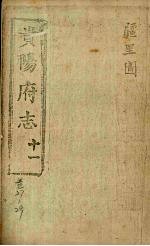 疆里圖
貴陽府志
十一